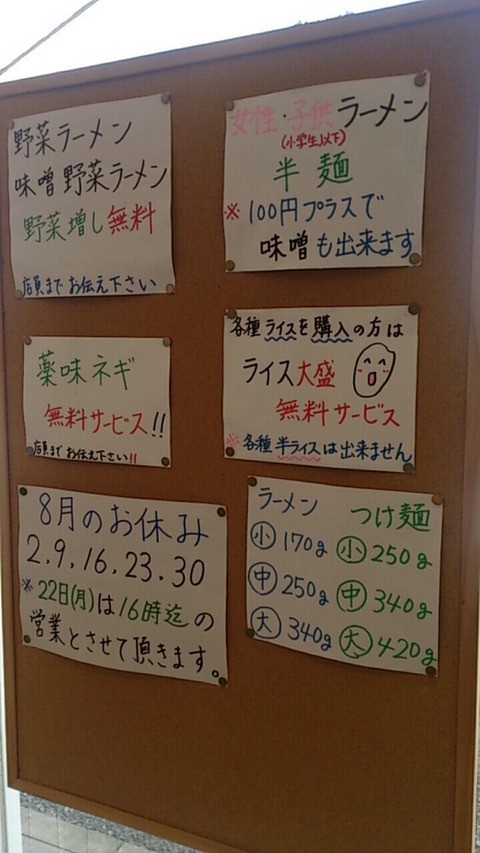 野菜ラーメン
味噌野菜ラーメン
野菜増し無料
店員までお伝え下さい
女性・子供ラーメン
(小学生以下)
半麺
※100円プラスで
味噌も出来ます
薬味ネギ
無料サービス!!
店員までお伝え下さい!!
各種ライスを購入の方は
ライス大盛
無料サービス
※各種半ライスは出来ません
8月のお休み
2.9.16.23.30
※22日(月)は16時迄の
営業とさせて頂きます。
ラーメン つけ麺
小 170g 小 250g
中 250g 中 340g
大 340g 大 420g